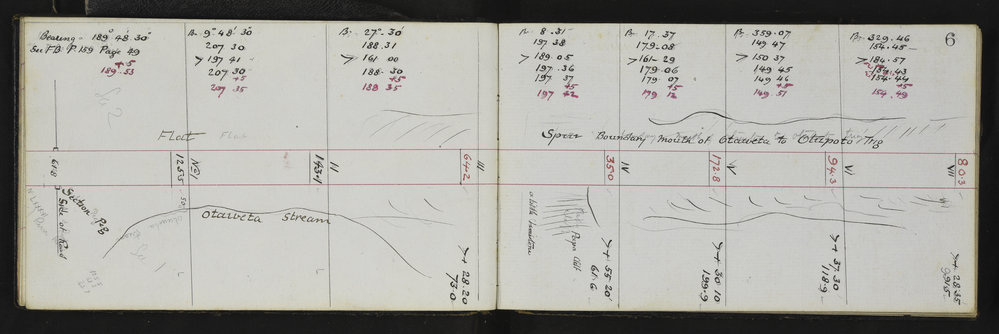 Bearing - 189° 48' 30"
See FB. P. 159 Page 49
+5
189.53
B. 9° 48' 30"
207 30
> 197 41 -
207 30
+5
207 35
B. 27° 30'
188.31
> 161 00
188.30
+5
188 35
B 8.31
197 38
> 189.05
197.36
197 37
+5
197 42
B 17.37
179.08
> 161-29
179.06
179.07
+5
179 12
B- 359.07
149 47
> 150 37
149 45
149 46
+5
149.51
B- 329.46
154.45
> 184.57
154.43
154.44
+5
154.49
6
Flat
Flat
Spur Boundary mouth of Otaweta to Otupoto Trig
618
1255
No 1
1431
II
642
III
350
IV
172.8
V
94.3
VI
80.3
VII
Section
Side of Road
Otaweta Stream
Sec 2
Sec 1
> + 28.20
73.0
white limestone
Papa Cliff
> + 55.20
61.6
> + 30.10
199.9
> + 37.30
118.9
> + 28.35
99.5